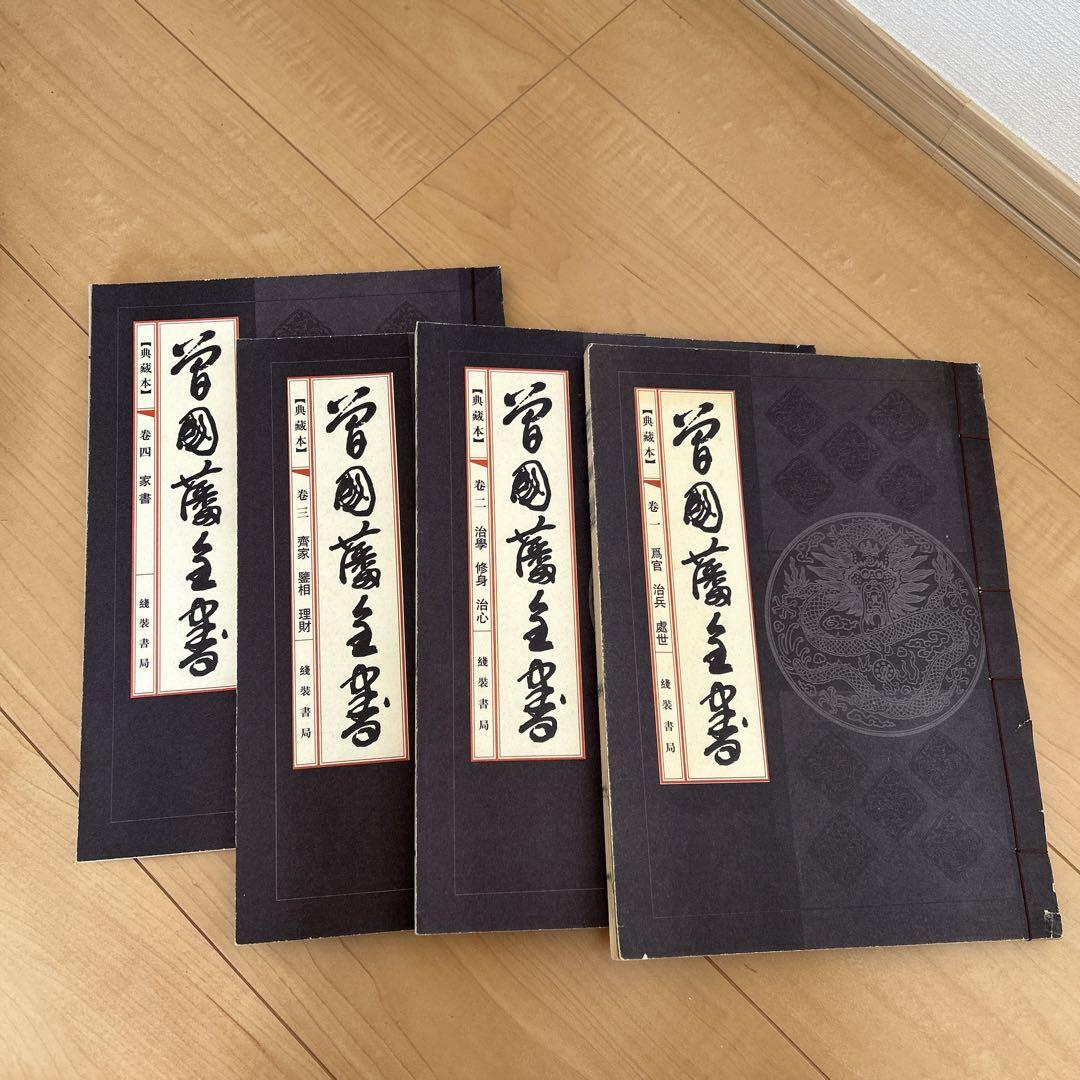 【典藏本】
卷四 家書
綫裝書局
曾國藩全書
【典藏本】
卷三 齊家 鑒相 理財
綫裝書局
曾國藩全書
【典藏本】
卷二 治學 修身 治心
綫裝書局
曾國藩全書
【典藏本】
卷一 爲官 治兵 處世
綫裝書局
曾國藩全書